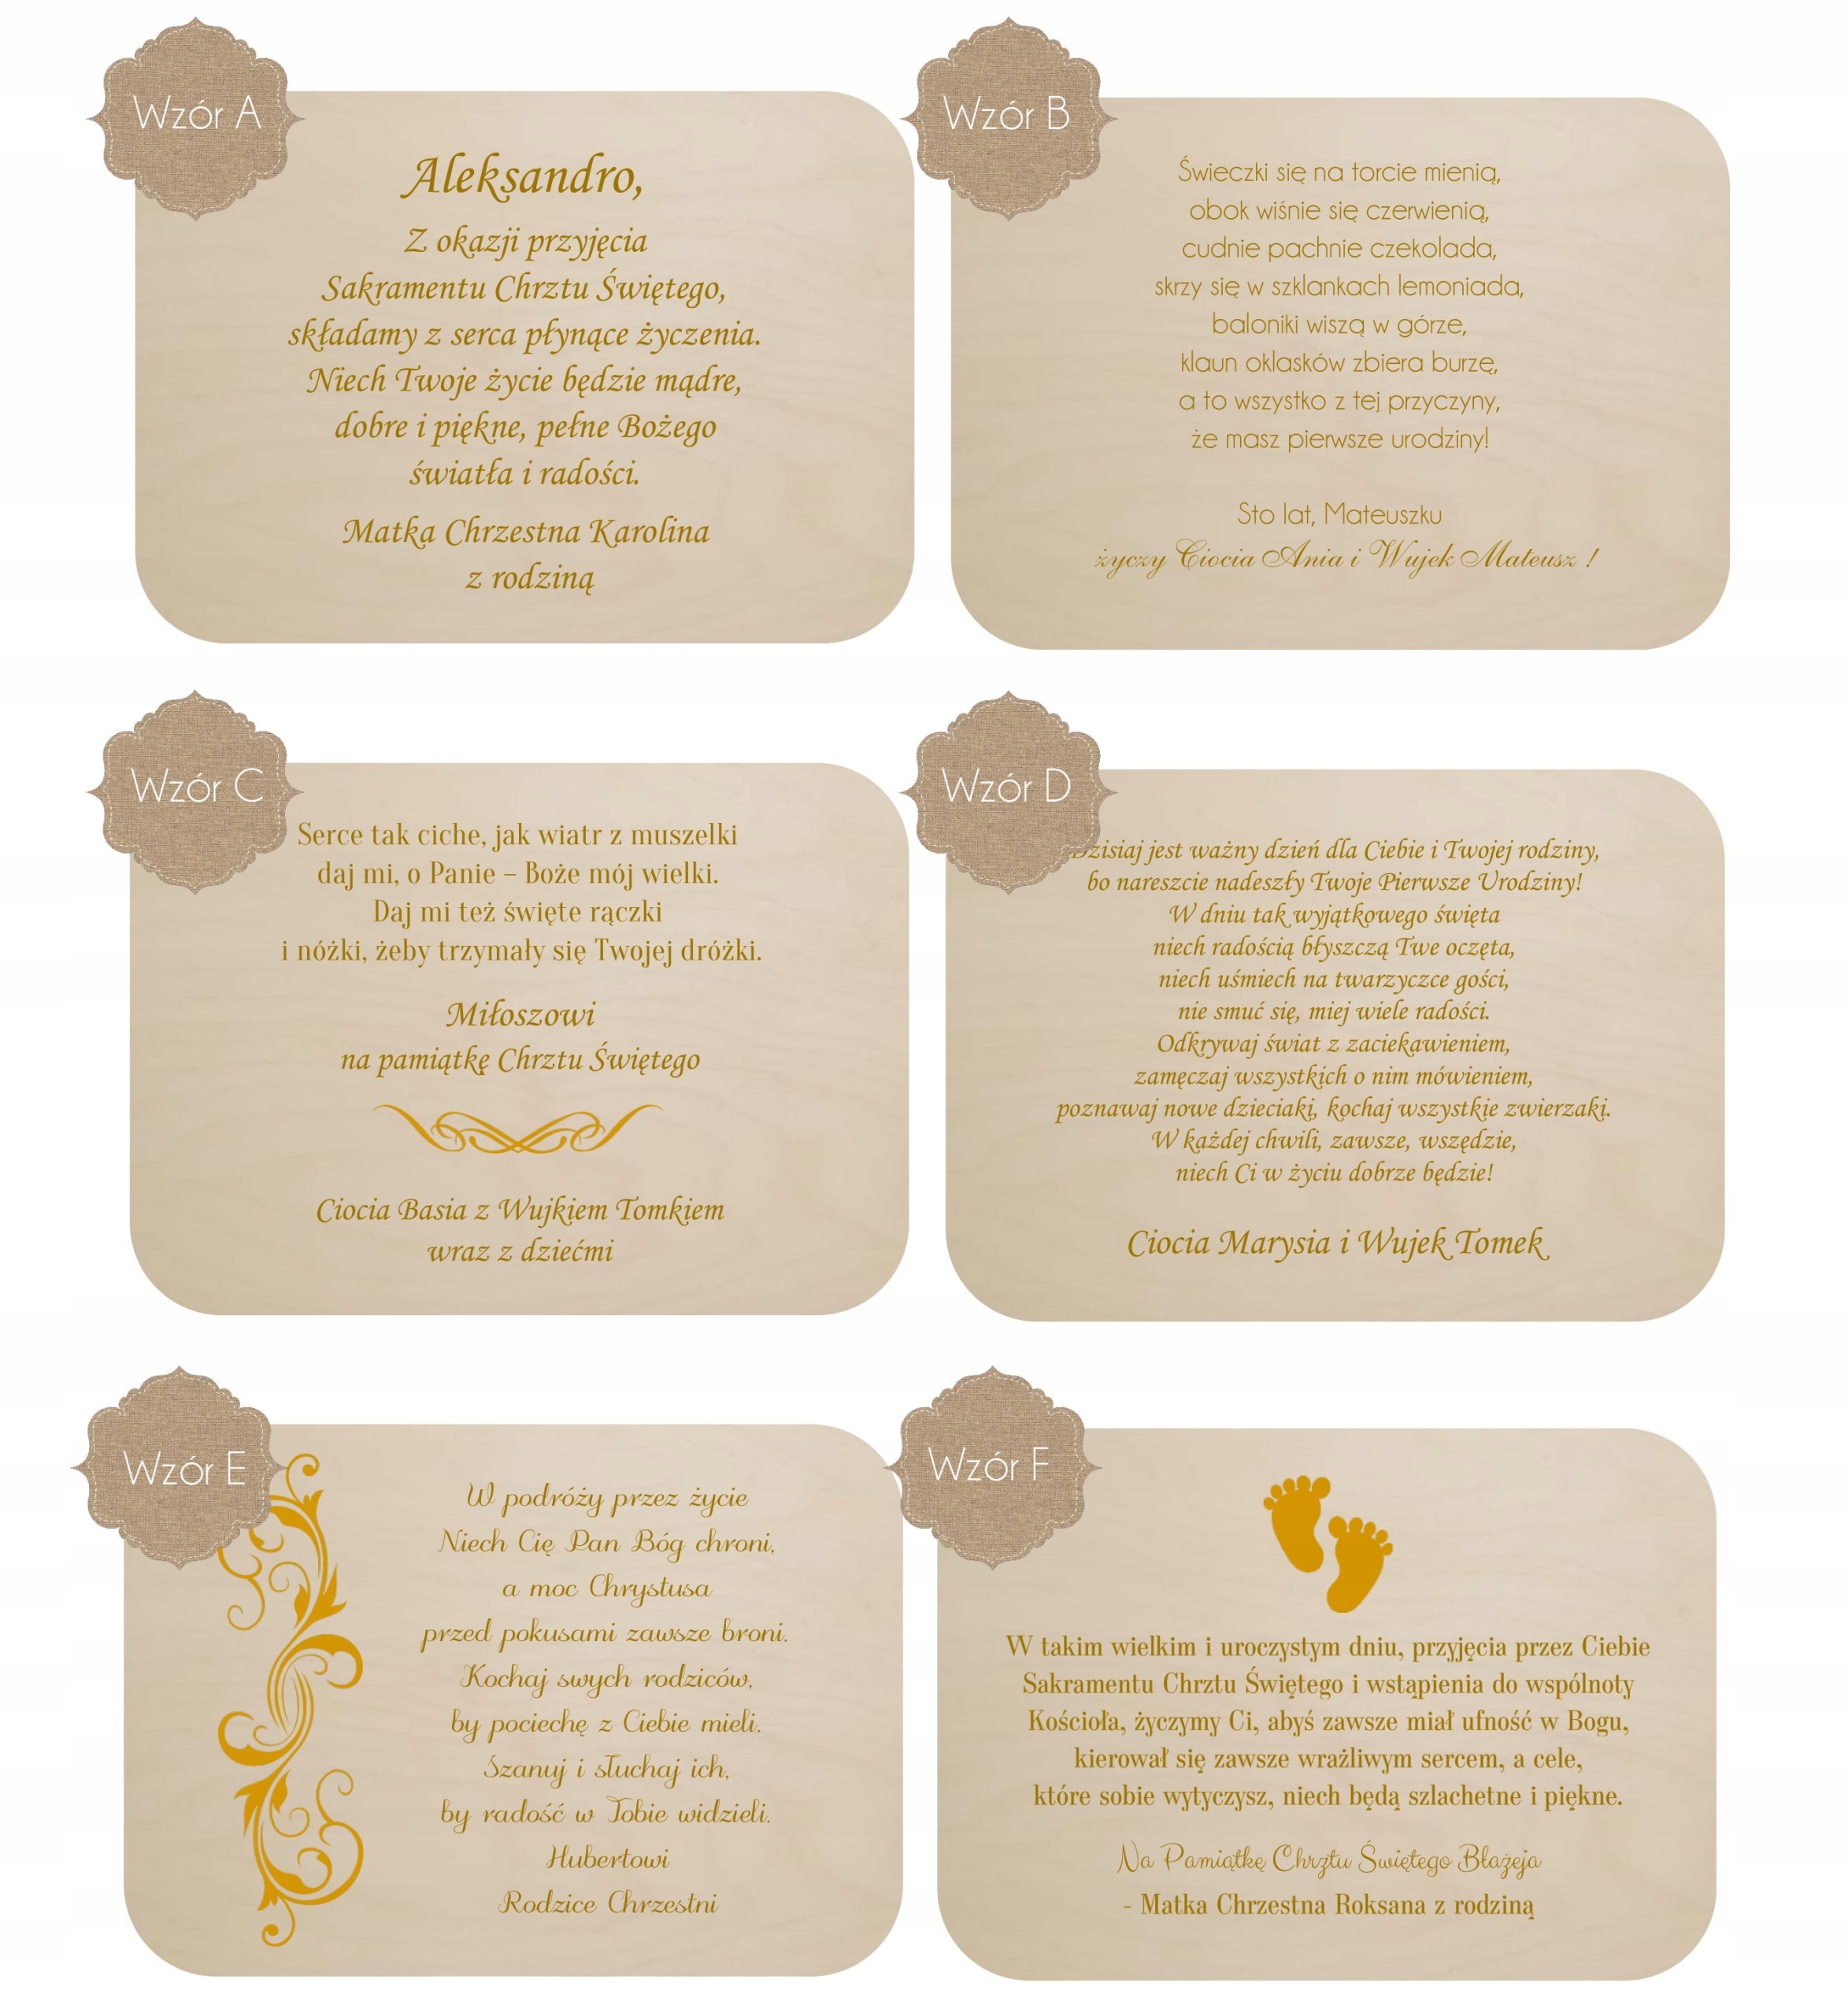 Wzór A
Aleksandro,
Z okazji przyjęcia
Sakramentu Chrztu Świętego,
składamy z serca płynące życzenia.
Niech Twoje życie będzie mądre,
dobre i piękne, pełne Bożego
światła i radości.
Matka Chrzestna Karolina
z rodziną
Wzór B
Świeczki się na torcie mienią,
obok wiśnie się czerwienią,
cudnie pachnie czekolada,
skrzy się w szklankach lemoniada,
baloniki wiszą w górze,
klaun oklasków zbiera burzę,
a to wszystko z tej przyczyny,
że masz pierwsze urodziny!
Sto lat, Mateuszku
życzy Ciocia Ania i Wujek Mateusz !
Wzór C
Serce tak ciche, jak wiatr z muszelki
daj mi, o Panie – Boże mój wielki.
Daj mi też święte rączki
i nóżki, żeby trzymały się Twojej dróżki.
Miłoszowi
na pamiątkę Chrztu Świętego
Ciocia Basia z Wujkiem Tomkiem
wraz z dziećmi
Wzór D
Dzisiaj jest ważny dzień dla Ciebie i Twojej rodziny,
bo nareszcie nadeszły Twoje Pierwsze Urodziny!
W dniu tak wyjątkowego święta
niech radością błyszczą Twe oczęta,
niech uśmiech na twarzyczce gości,
nie smuć się, miej wiele radości.
Odkrywaj świat z zaciekawieniem,
zamęczaj wszystkich o nim mówieniem,
poznawaj nowe dzieciaki, kochaj wszystkie zwierzaki.
W każdej chwili, zawsze, wszędzie,
niech Ci w życiu dobrze będzie!
Ciocia Marysia i Wujek Tomek
Wzór E
W podróży przez życie
Niech Cię Pan Bóg chroni,
a moc Chrystusa
przed pokusami zawsze broni.
Kochaj swych rodziców,
by pociechę z Ciebie mieli.
Szanuj i słuchaj ich,
by radość w Tobie widzieli.
Hubertowi
Rodzice Chrzestni
Wzór F
W takim wielkim i uroczystym dniu, przyjęcia przez Ciebie
Sakramentu Chrztu Świętego i wstąpienia do wspólnoty
Kościoła, życzymy Ci, abyś zawsze miał ufność w Bogu,
kierował się zawsze wrażliwym sercem, a cele,
które sobie wytyczysz, niech będą szlachetne i piękne.
Na Pamiątkę Chrztu Świętego Błażeja
- Matka Chrzestna Roksana z rodziną